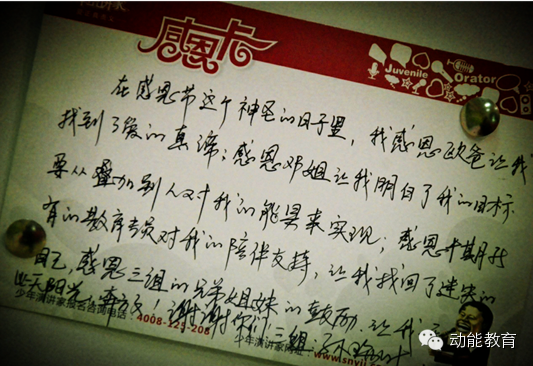 感恩卡
Juvenile Orator
在感恩节这个神圣的日子里,我感恩欧爸让我
找到了爱的真谛;感恩邓姐让我明白了我的目标
要从叠加别人对我的能量来实现;感恩十期所
有的教库专员对我的陪伴支持,让我找回了迷失的
自己,感恩三组的兄弟姐妹的鼓励,让我
!谢谢你们 三组:
少年演讲家报名咨询电话:4008-125-208
少年演讲家网址:www.snyj
动能教育